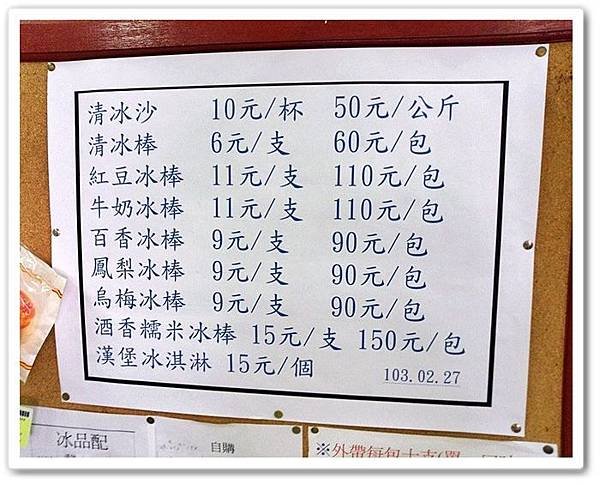 清冰沙 10元/杯 50元/公斤
清冰棒 6元/支 60元/包
紅豆冰棒 11元/支 110元/包
牛奶冰棒 11元/支 110元/包
百香冰棒 9元/支 90元/包
鳳梨冰棒 9元/支 90元/包
烏梅冰棒 9元/支 90元/包
酒香糯米冰棒 15元/支 150元/包
漢堡冰淇淋 15元/個
103.02.27
冰品配
自購
※外帶每包十支(單